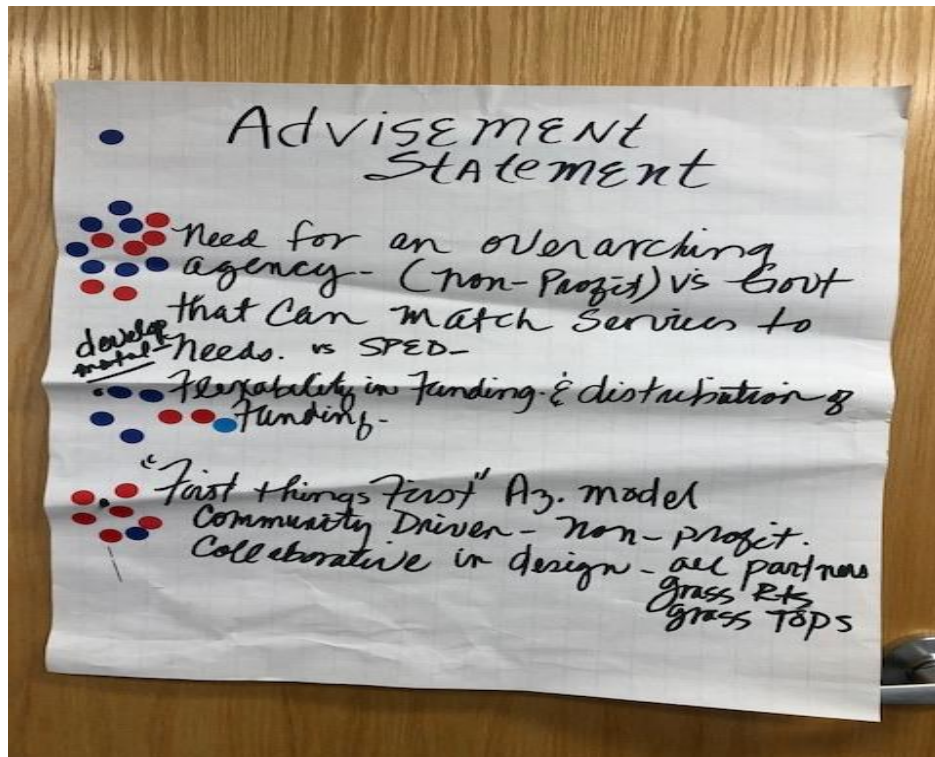 Advisement
Statement
Need for an overarching
agency - (non-Profit) vs Govt
that can match services to
develop
mental - Needs. vs SPED-
Flexability in Funding & distribution of
Funding-
"First things First" Az. model
Community Driven - non-profit.
Collaborative in design - all partners
grass Rts
grass Tops